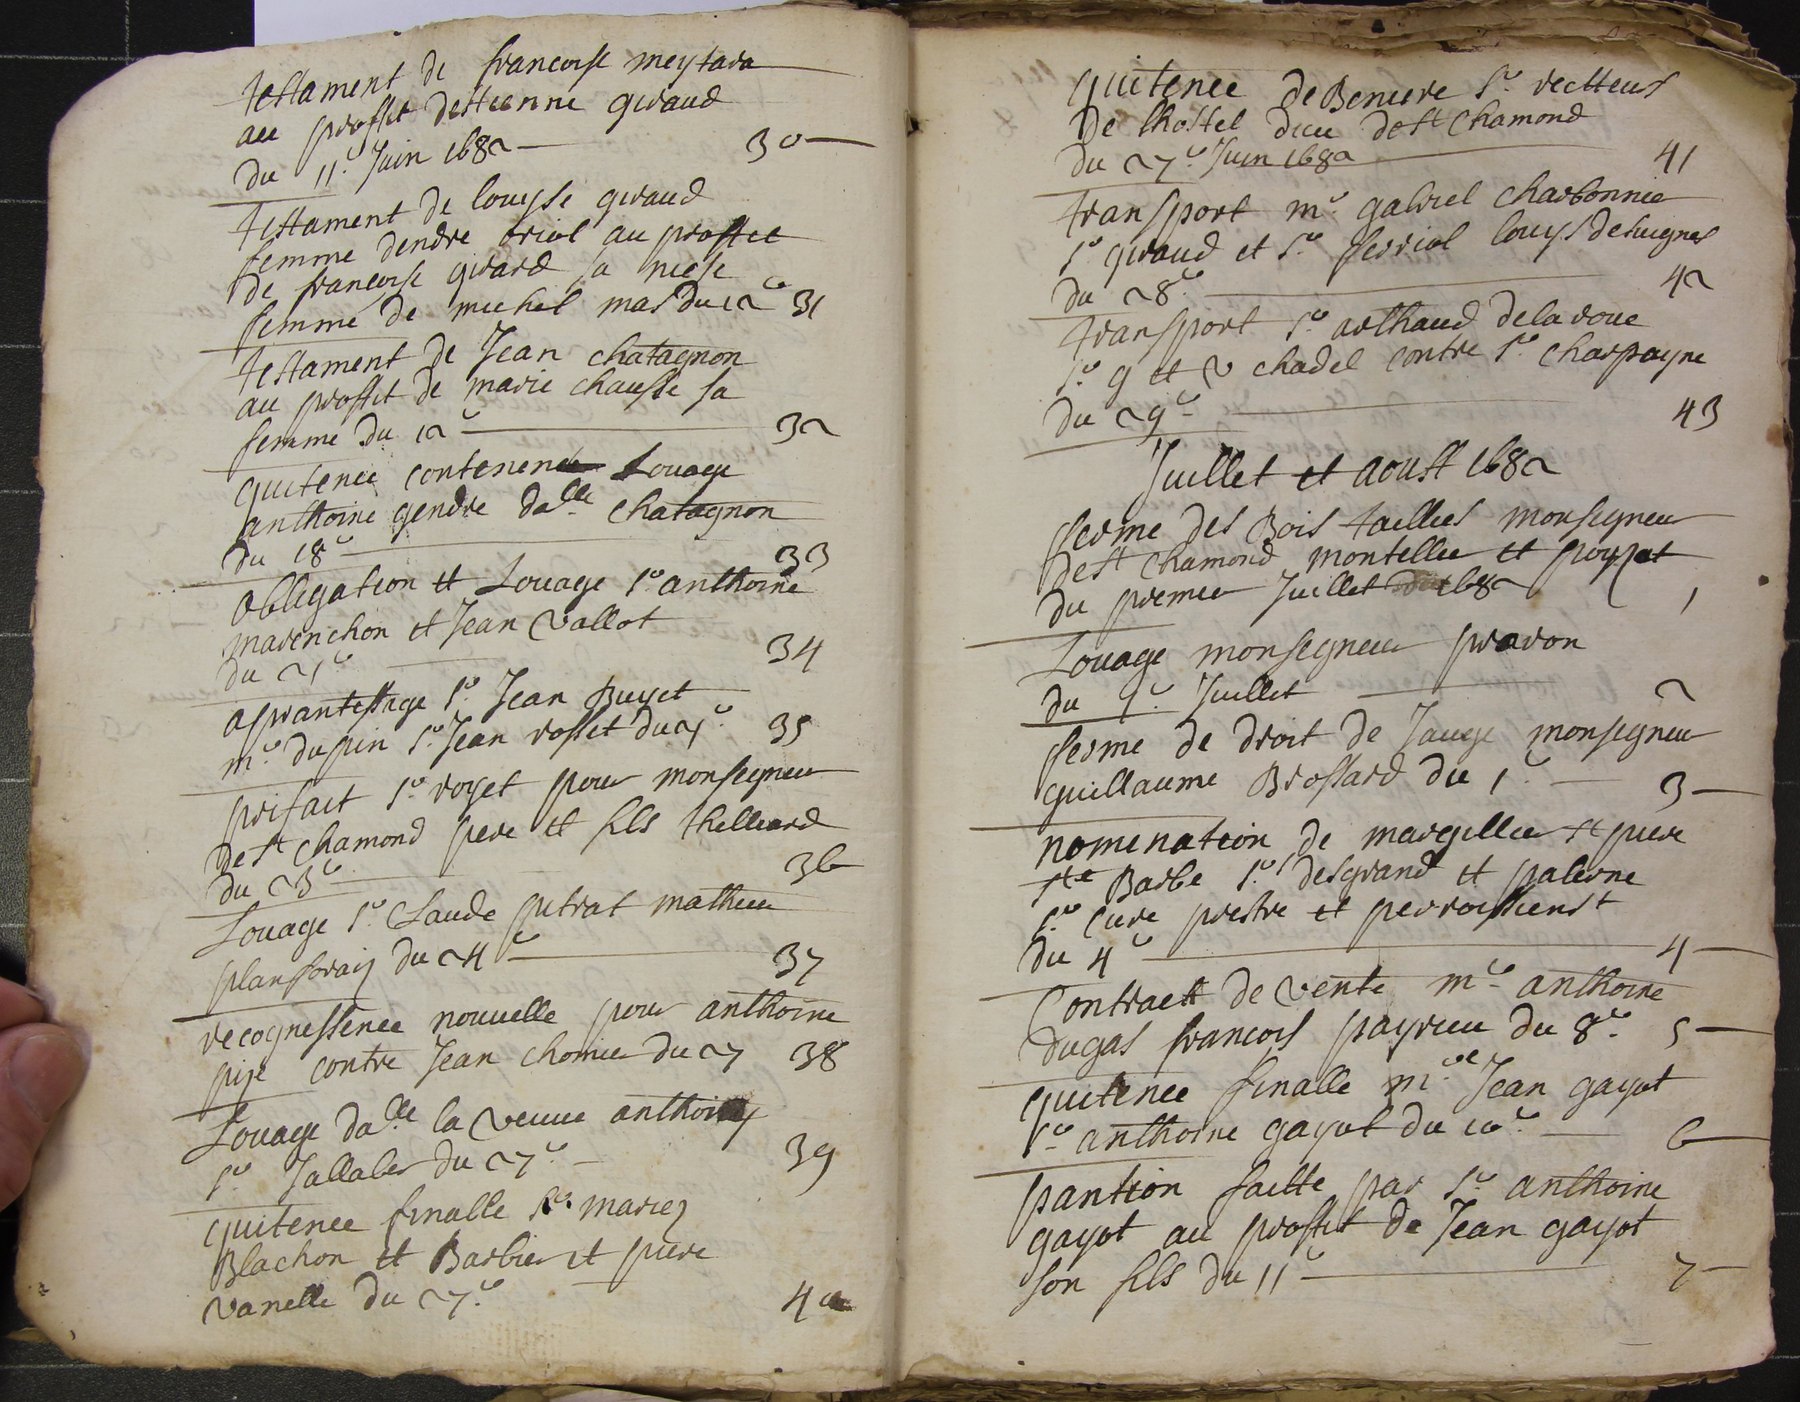 testament de francoise meytara
au proffit destienne giraud
du 11e Juin 1682 30
testament de louyse giraud
femme dendre oriol au proffit
de francoise girard sa niese
femme de michel mas du 12e 31
testament de Jean chatagnon
au proffit de marie chausse sa
femme du 12e 32
quitence contenend Louage
anthoine gendre dalle chatagnon
du 18e 33
obligation et Louage sr anthoine
marenchon et Jean vallot
du 21e 34
aprantissage sr Jean Buyet
mr dupin sr Jean rosset du 21e 35
prifait sr royet pour monseigneur
de st chamond pere et fils thelliard
du 23e 36
Louage sr Claude pitrat mathieu
planforay du 24e 37
recognessence nouvelle pour anthoine
pije contre Jean chomier du 27 38
Louage dalle la veuve
sr Jallaler du 27e 39
quitence finalle marie
Blachon et Barbier et piere
vanelle du 27e 40
quitence de Beniere sr recteurs
de lhostel dieu de st Chamond
du 27e Juin 1682 41
transport mr gabriel charbonnie
sr giraud et sr ferriol louys desuignes
du 28e 42
transport sr arthaud delaroue
sr g et v chadel contre sr charpayne
du 29e 43
Juillet et aoust 1682
ferme des Bois taillies monseigneur
de st chamond montellier et poyzat
du premier Juillet 1682 1
Louage monseigneur praron
du 1e Juillet 2
ferme de droit de Jauge monseigneur
guillaume Brossard du 1e 3
nomenation de margillier st piere
ste Barbe sr desgrand et palerne
sr cure prestre et perroissiens
du 4e 4
Contract de vente mre anthoine
dugas francois payrieu du 8e 5
quitence finalle mre Jean gayot
sr anthoine gayot du 10e 6
pantion faitte par sr anthoine
gayot au proffit de Jean gayot
son fils du 11e 7